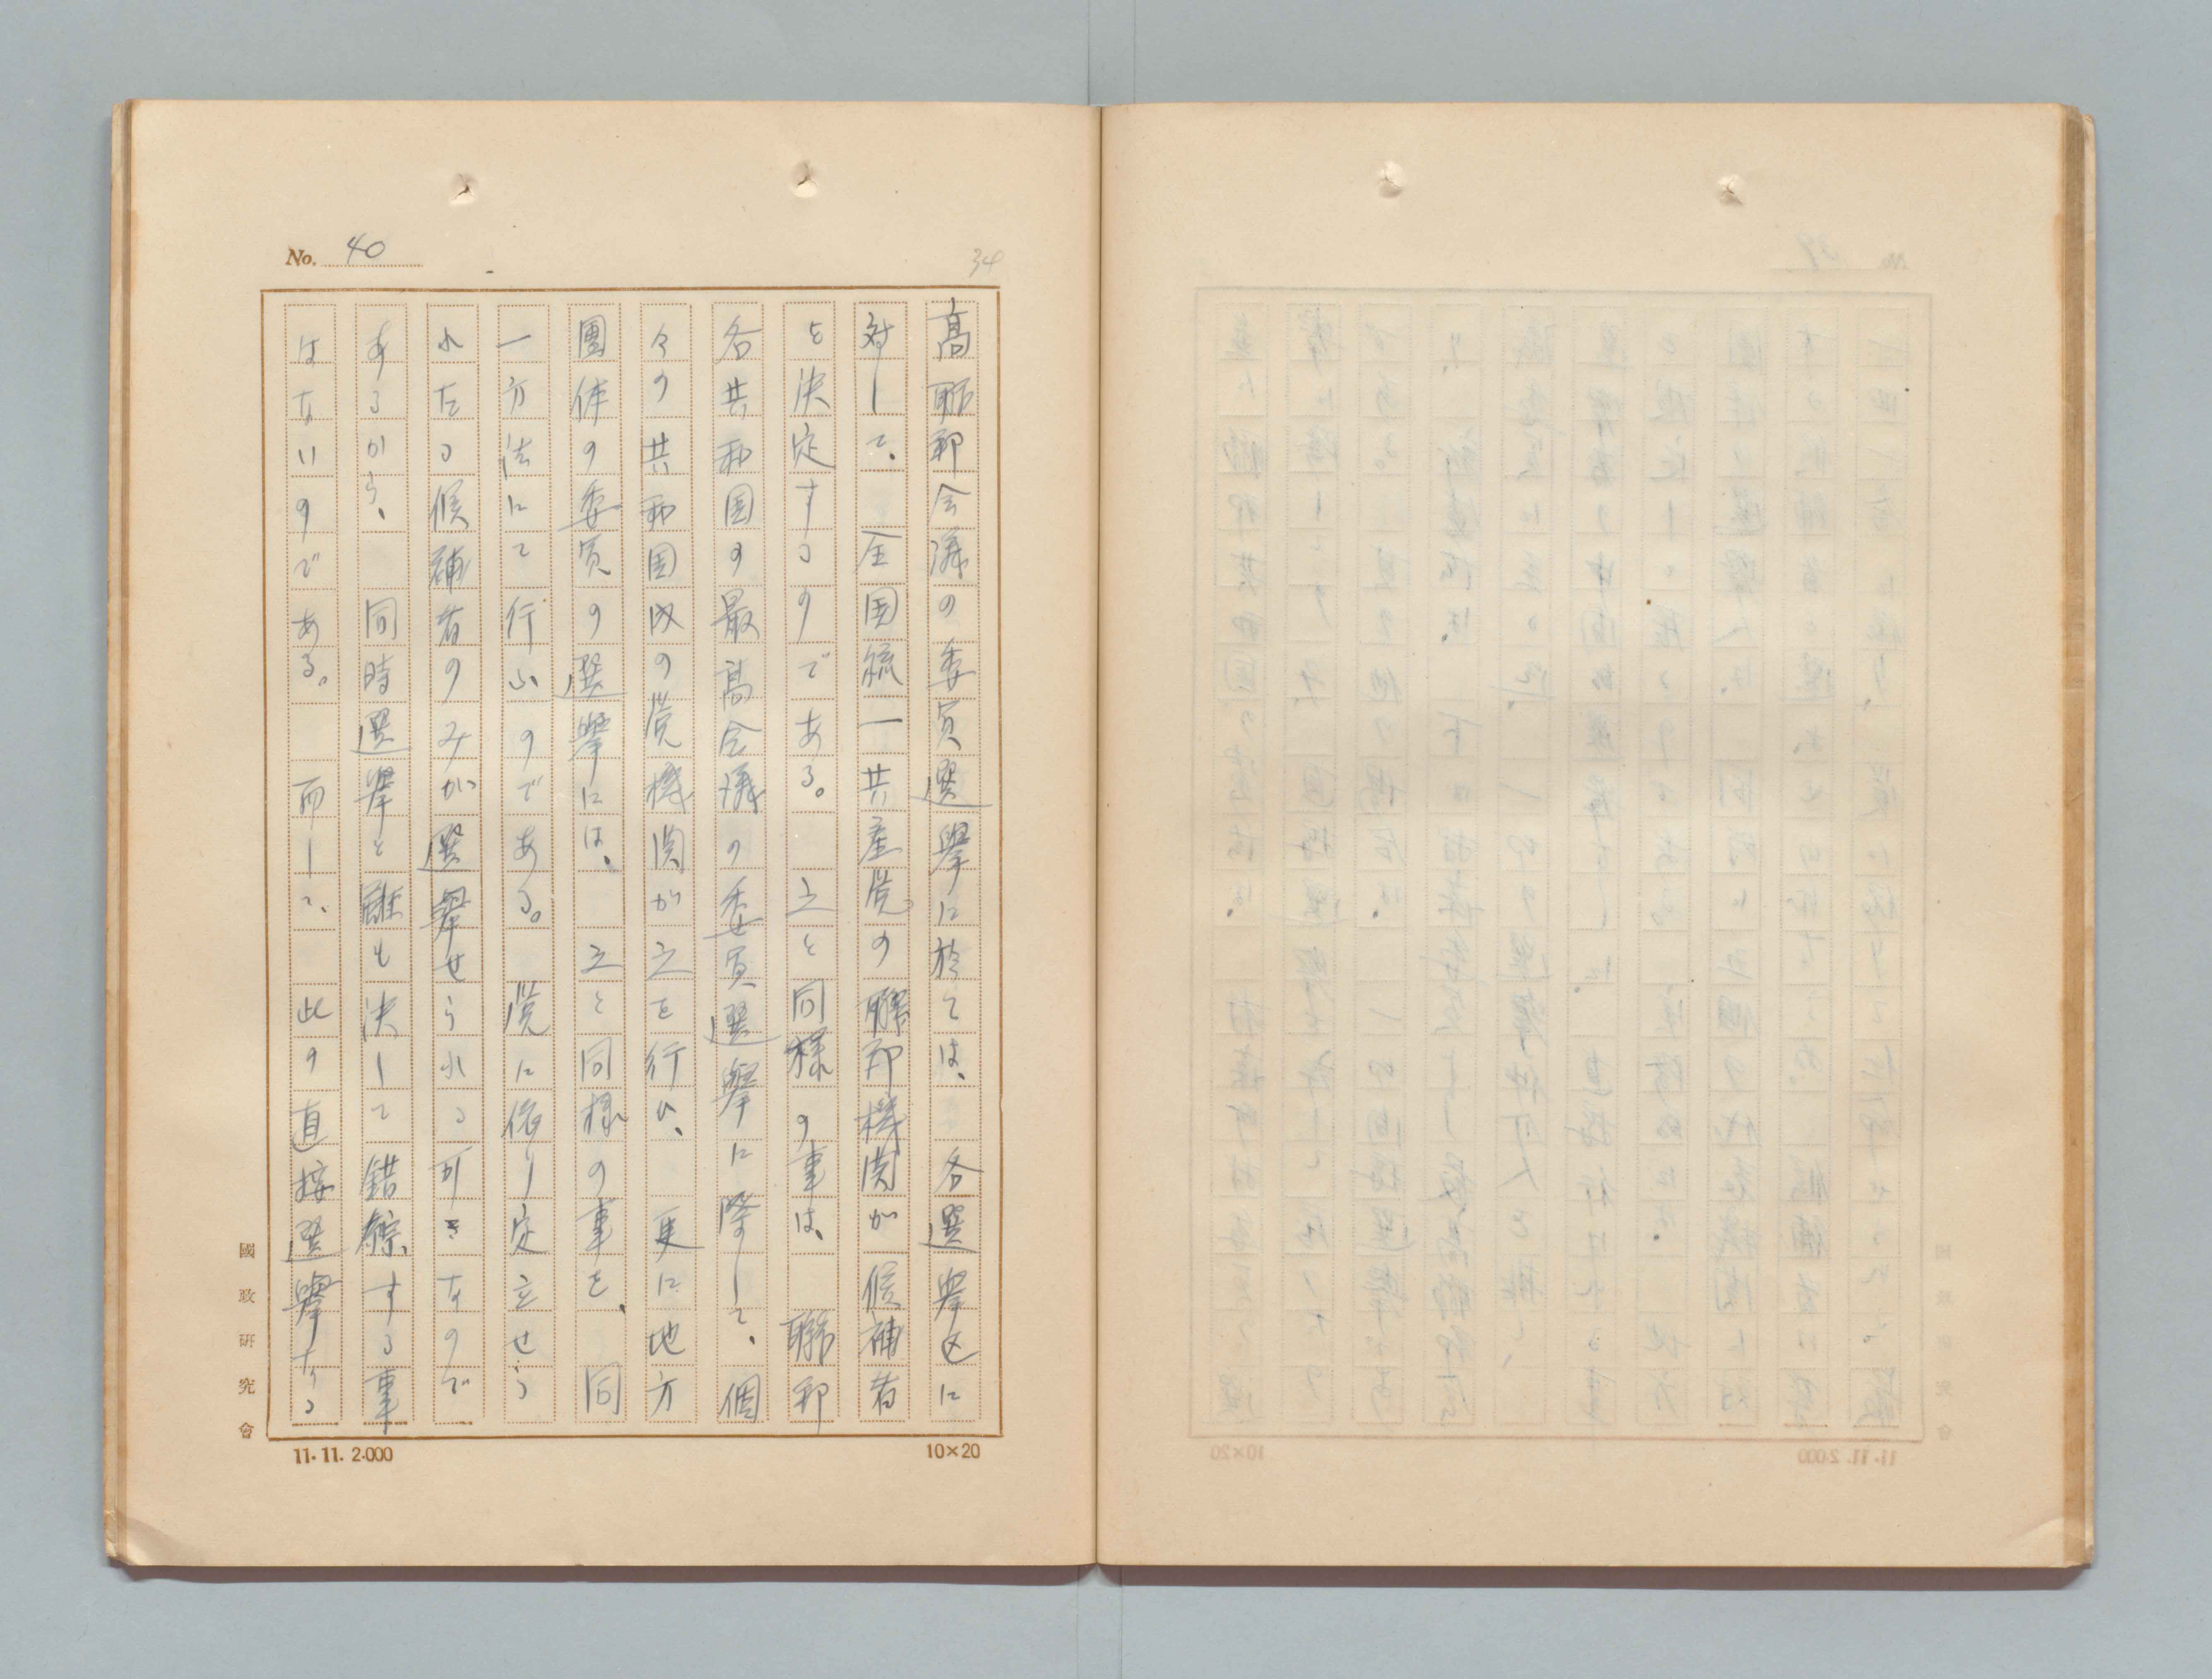 No. 40
34
高聯邦会議の委員選擧に於ては、各選擧区に
対して、全国統一共産党の聯邦機関が候補者
を決定するのである。之と同様の事は、聯邦
各共和国の最高会議の委員選擧に際して、個
々の共和国内の党機関が之を行ひ、更に地方
團体の委員の選擧には、之と同様の事を、同
一方法にて行ふのである。党に依り定立せら
れたる候補者のみが選擧せられる可きなので
あるから、同時選擧と雖も決して錯綜する事
はないのである。而して、此の直接選擧なる
國政研究會
11.11.2.000
10×20